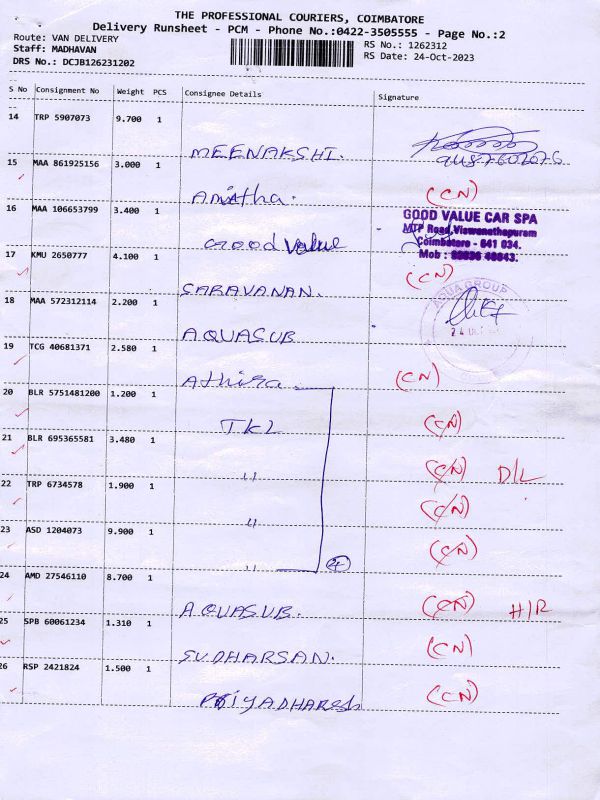 THE PROFESSIONAL COURIERS, COIMBATORE
Delivery Runsheet - PCM - Phone No.:0422-3505555 - Page No.:2
Route: VAN DELIVERY
Staff: MADHAVAN
DRS No.: DCJB126231202
RS No.: 1262312
RS Date: 24-Oct-2023
S No Consignment No Weight PCS Consignee Details Signature
14 TRP 5907073 9.700 1
MEENAKSHI.
15 MAA 861925156 3.000 1
Anitha. (CN)
16 MAA 106653799 3.400 1
GOOD Value
GOOD VALUE CAR SPA
MTP Road, Viswanathapuram
Coimbatore - 641 034.
17 KMU 2650777 4.100 1
SARAVANAN. (CN)
18 MAA 572312114 2.200 1
AQUASUB
AQUA GROUP
19 TCG 40681371 2.580 1
Athira (CN)
20 BLR 5751481200 1.200 1
TKL (CN)
21 BLR 695365581 3.480 1
" (CN) D/L
22 TRP 6734578 1.900 1
" (CN)
23 ASD 1204073 9.900 1
" (4) (CN)
24 AMD 27546110 8.700 1
AQUASUB. (CN) H/R
25 SPB 60061234 1.310 1
SUDHARSAN. (CN)
26 RSP 2421824 1.500 1
PRIYADHARSH (CN)